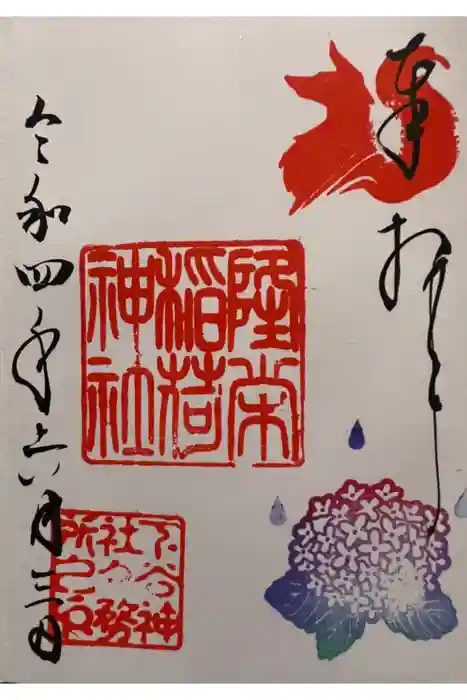 奉拝
隆栄
稲荷
神社
下谷神
社々務
所之印
令和四年六月